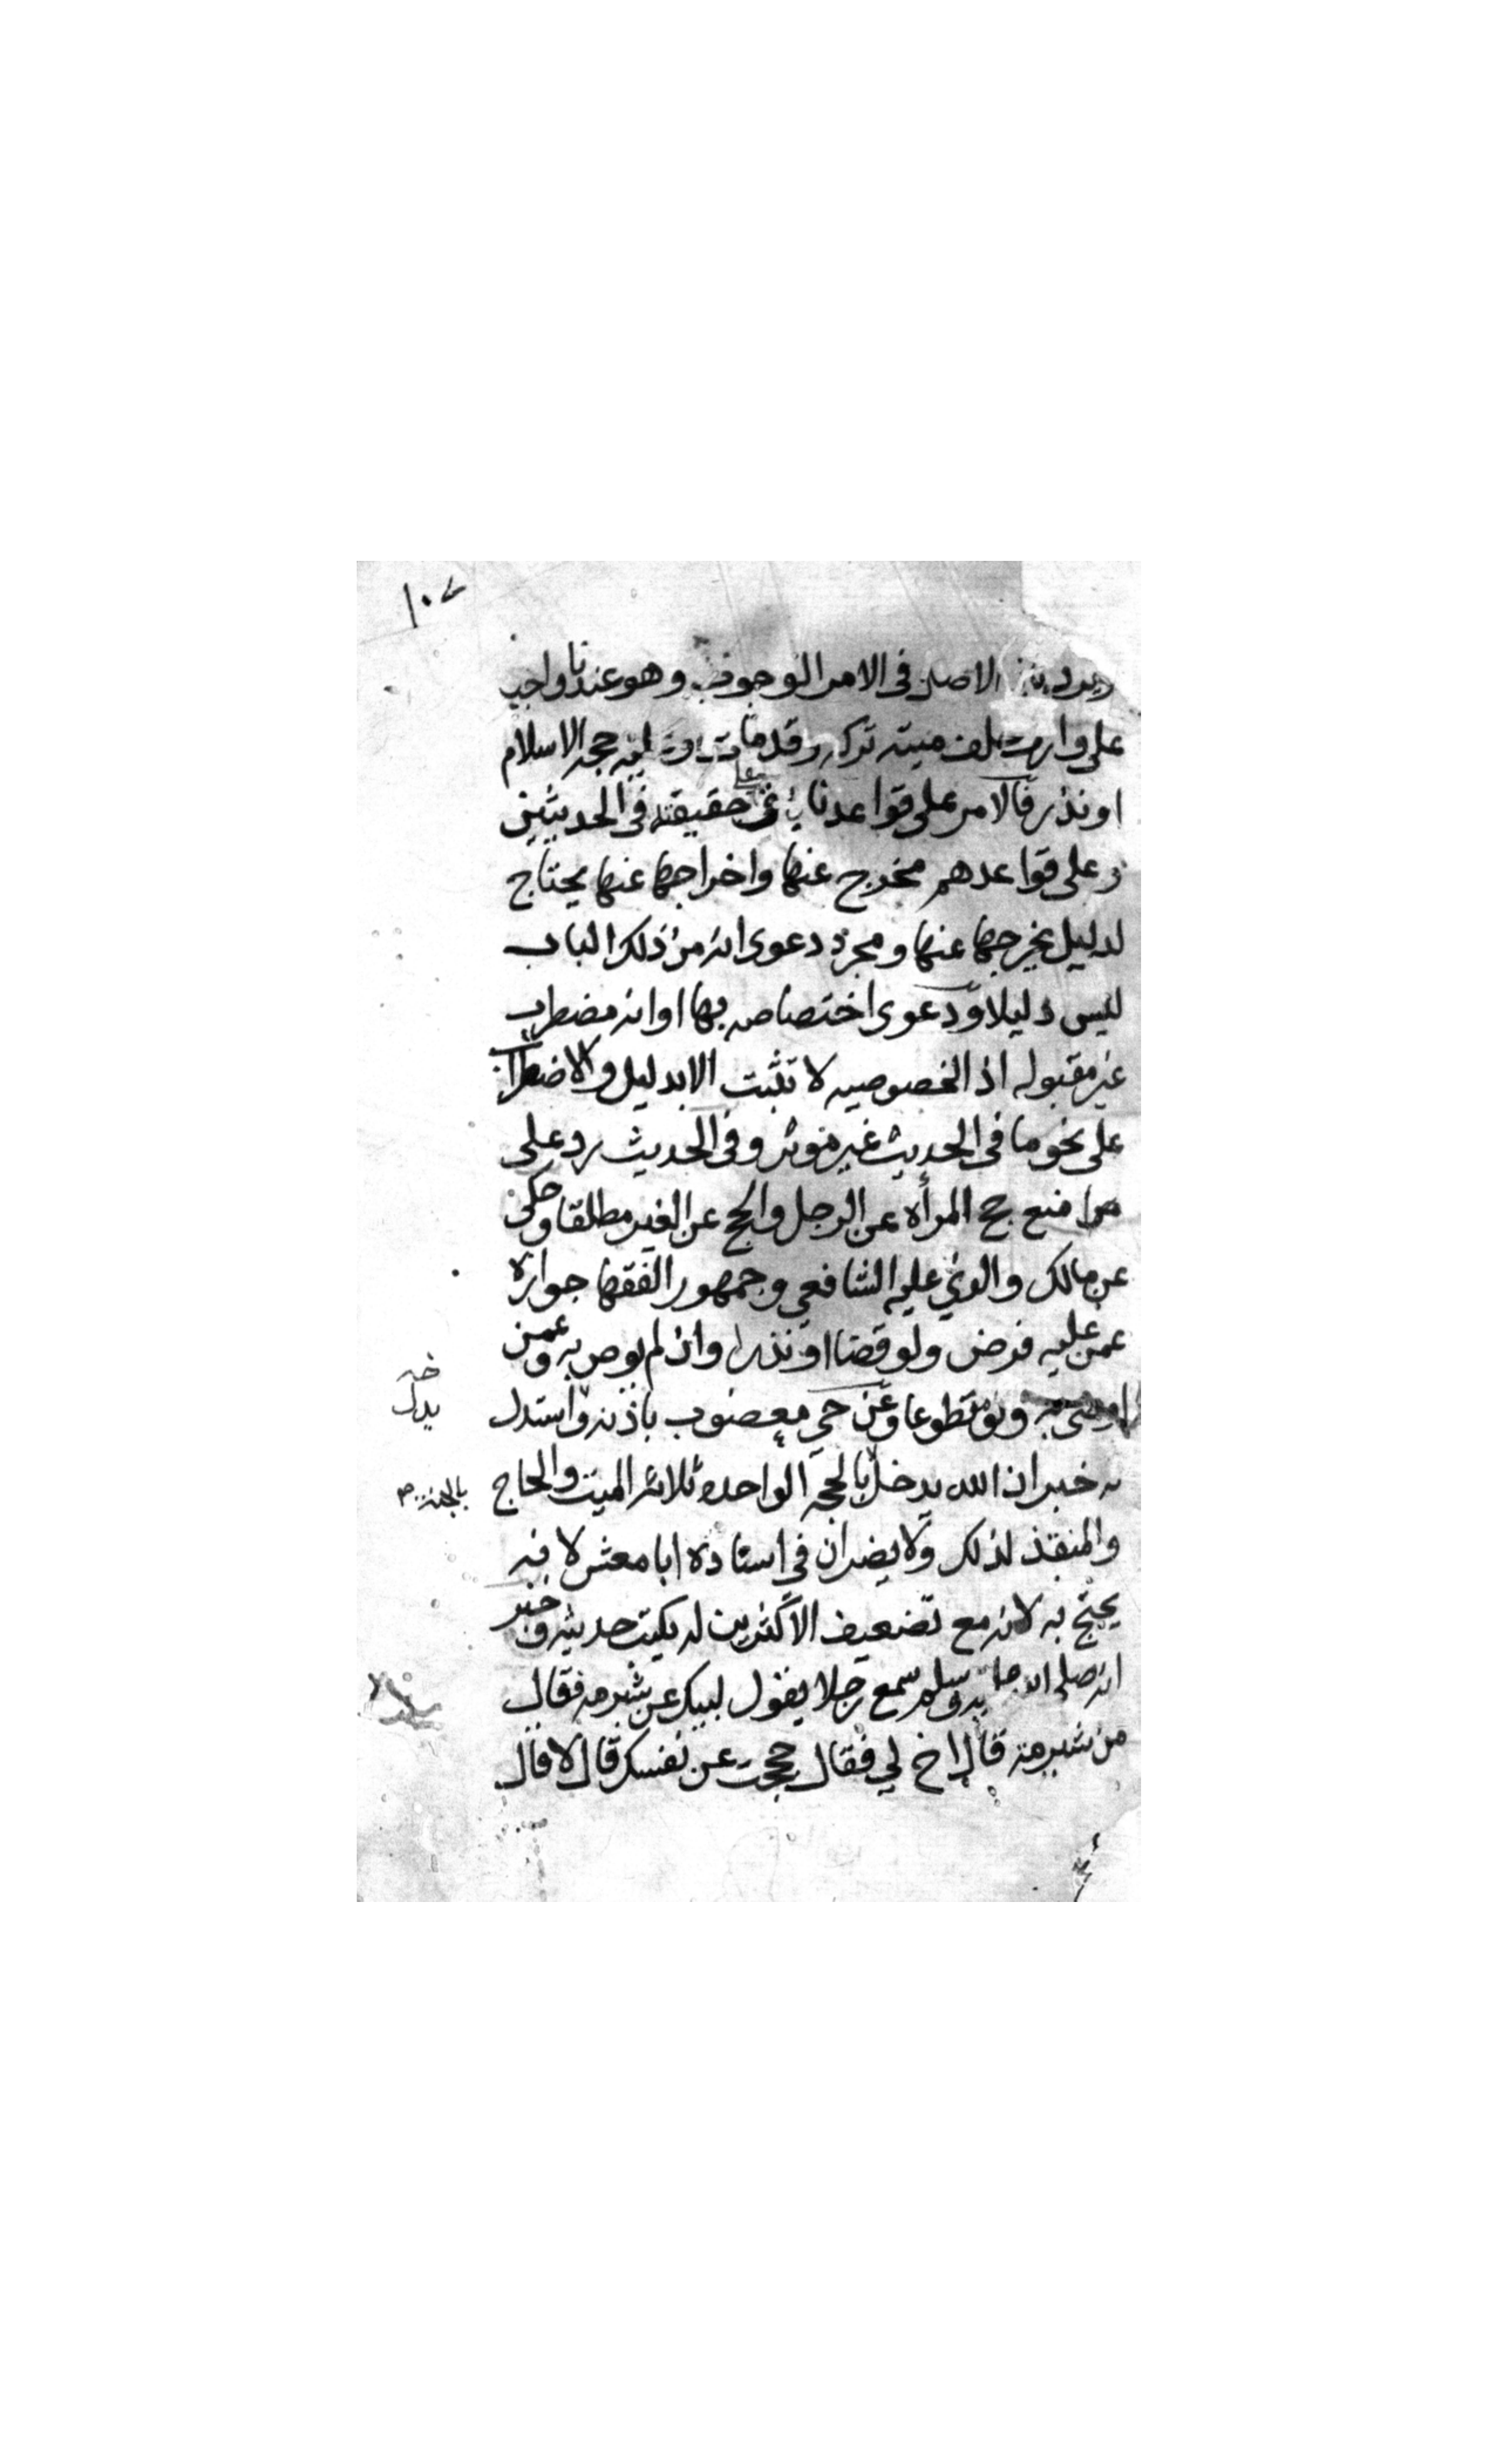 ١٠٧
الاصل فى الامر الوجوب وهو عندنا واجب
على وارث خلف ميته تركه وقد مات وعليه حجه الاسلام
او نذر فالامر على قواعدنا باق على حقيقته فى الحديثين
وعلى قواعدهم مخرج عنها واخراجها عنها يحتاج
لدليل يخرجها عنها ومجرد دعوى انه من ذلك الباب
ليس دليلا ودعوى اختصاصه بها او انه مضطرب
غير مقبوله اذ الخصوصيه لا تثبت الا بدليل والاضطراب
على نحو ما فى الحديث غير موثر وفى الحديث رد على
من منع حج المرأه عن الرجل والحج عن الغير مطلقا وحكى
عن مالك والذي عليه الشافعي وجمهور الفقها جوازه
عمن عليه فرض ولو قضا او نذرا وان لم يوص به وعمن
اوصى به ولو تطوعا وعن حي معضوب باذنه واستدل
له خبر ان الله يدخل بالحجه الواحده ثلاثه الميت والحاج
والمنفذ لذلك ولا يضر ان فى اسناده ابا معشر لا فيه
يحتج به لانه مع تضعيف الاكثرين له يكتب حديثه وخبر
انه صلى الله عليه وسلم سمع رجلا يقول لبيك عن شبرمه فقال
من شبرمة قال اخ لي فقال حججت عن نفسك قال لا قال
يدل
بالجنة